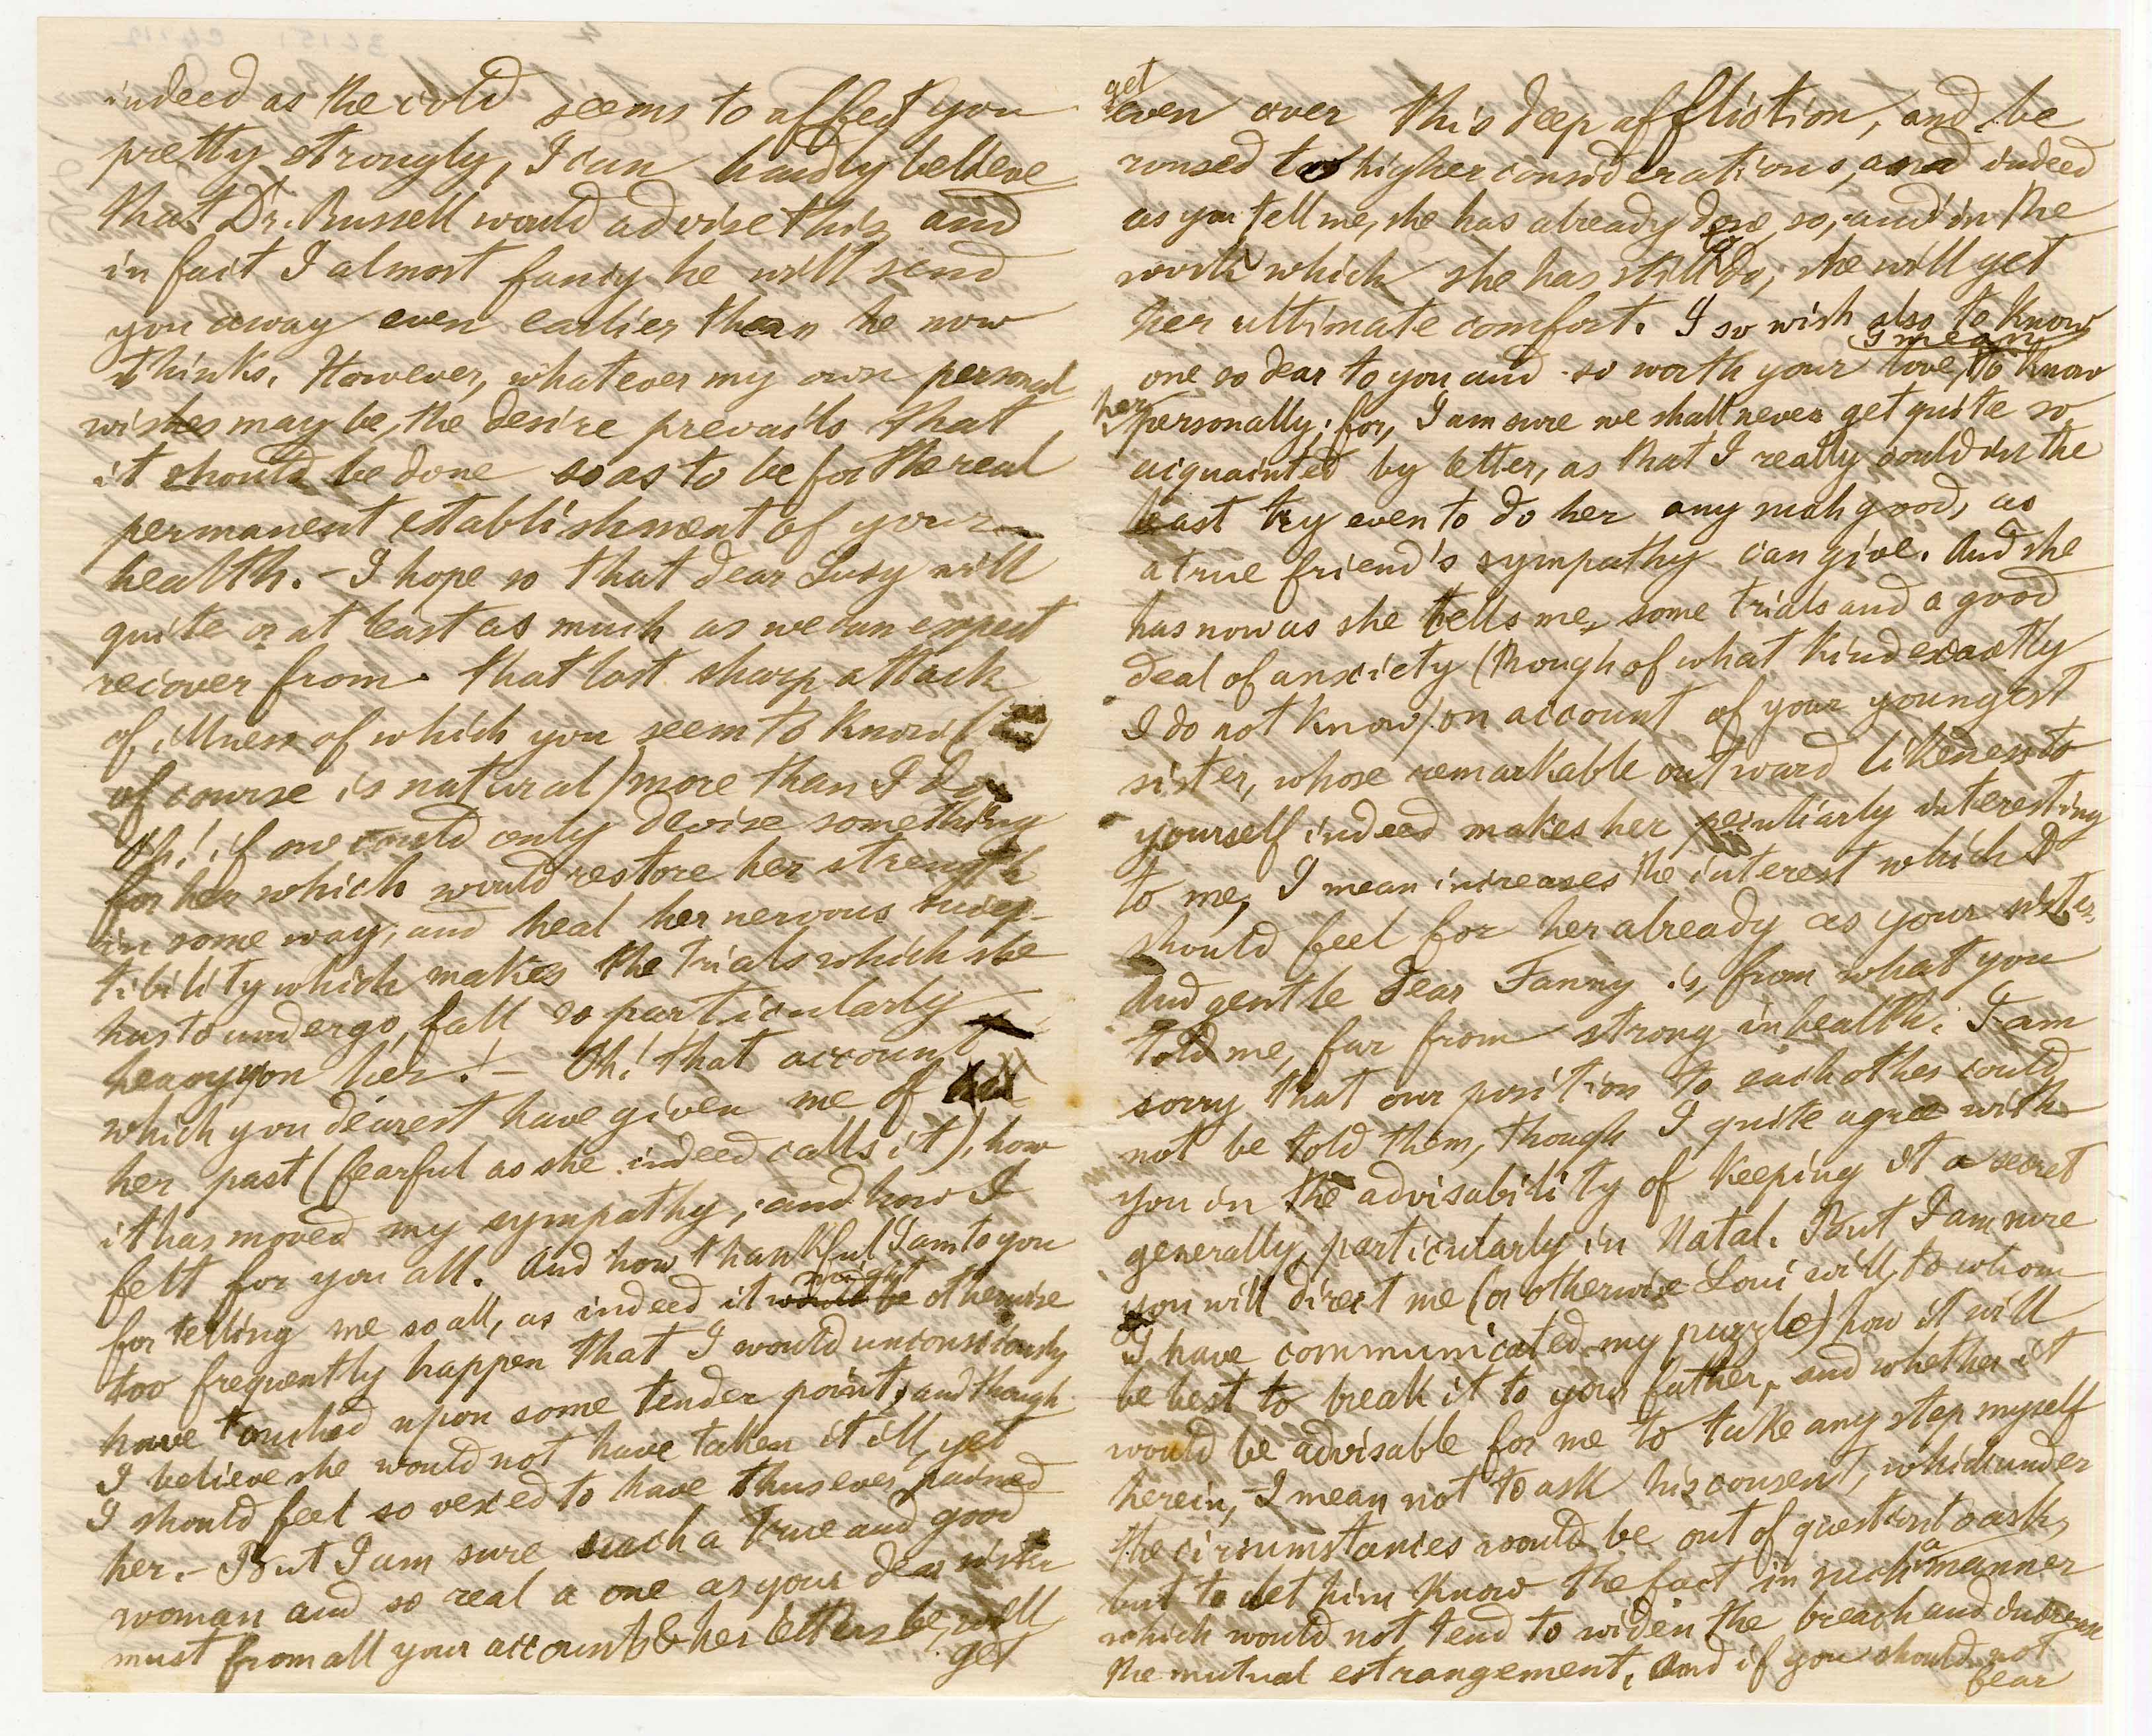 indeed as the cold seems to affect you
pretty strongly, I can hardly believe
that Dr. Russell would advise this, and
in fact I almost fancy he will send
you away even earlier than he now
thinks. However, whatever my own personal
wishes may be, the desire prevails that
it should be done so as to be for the real
permanent establishment of your
health. – I hope so that dear Lucy will
quite or at least as much as we can expect
recover from that last sharp attack
of illness of which you seem to know (as
of course is natural) more than I do.
Oh! if one could only devise something
for her which would restore her strength
in some way, and heal her nervous suscep-
tibility which makes the trials which she
has to undergo, fall so particularly
heavy upon her! – Oh! that account
which you dearest have given me of
her past (fearful as she indeed calls it), how
it has moved my sympathy, and how I
felt for you all. And how thankful I am to you
for telling me so all, as indeed it might otherwise
too frequently happen that I would unconsciously
have touched upon some tender point, and though
I believe she would not have taken it ill, yet
I should feel so vexed to have thus ever pained
her. – But I am sure such a true and good
woman and so real a one as your dear sister
must from all your accounts & her letters be, will
get
get
even over this deep affliction, and be
roused to higher considerations, and indeed
as you tell me, she has already done so, and in the
work which she has still to do, she will get
her ultimate comfort. I so wish also to know
one so dear to you and so worth your love, I mean to know
her personally; for, I am sure we shall never get quite so
acquainted by letter, as that I really could in the
least try even to do her any such good, as
a true friend's sympathy can give. And she
has now as she tells me, some trials and a good
deal of anxiety (though of what kind exactly
I do not know) on account of your youngest
sister, whose remarkable outward likeness to
yourself indeed makes her peculiarly interesting
to me, I mean increases the interest which I
should feel for her already as your sister.
And gentle dear Fanny is, from what you
told me, far from strong in health. I am
sorry that our position to each other could
not be told them, though I quite agree with
you in the advisability of keeping it a secret
generally, particularly in Natal. But I am sure
you will direct me (or otherwise Loui will, to whom
I have communicated my puzzle) how it will
be best to break it to your father, and whether it
would be advisable for me to take any step myself
herein, – I mean not to ask his consent, which under
the circumstances would be out of question to ask,
but to let him know the fact in such a manner
which would not tend to widen the breach and increase
the mutual estrangement. And if you should not
fear